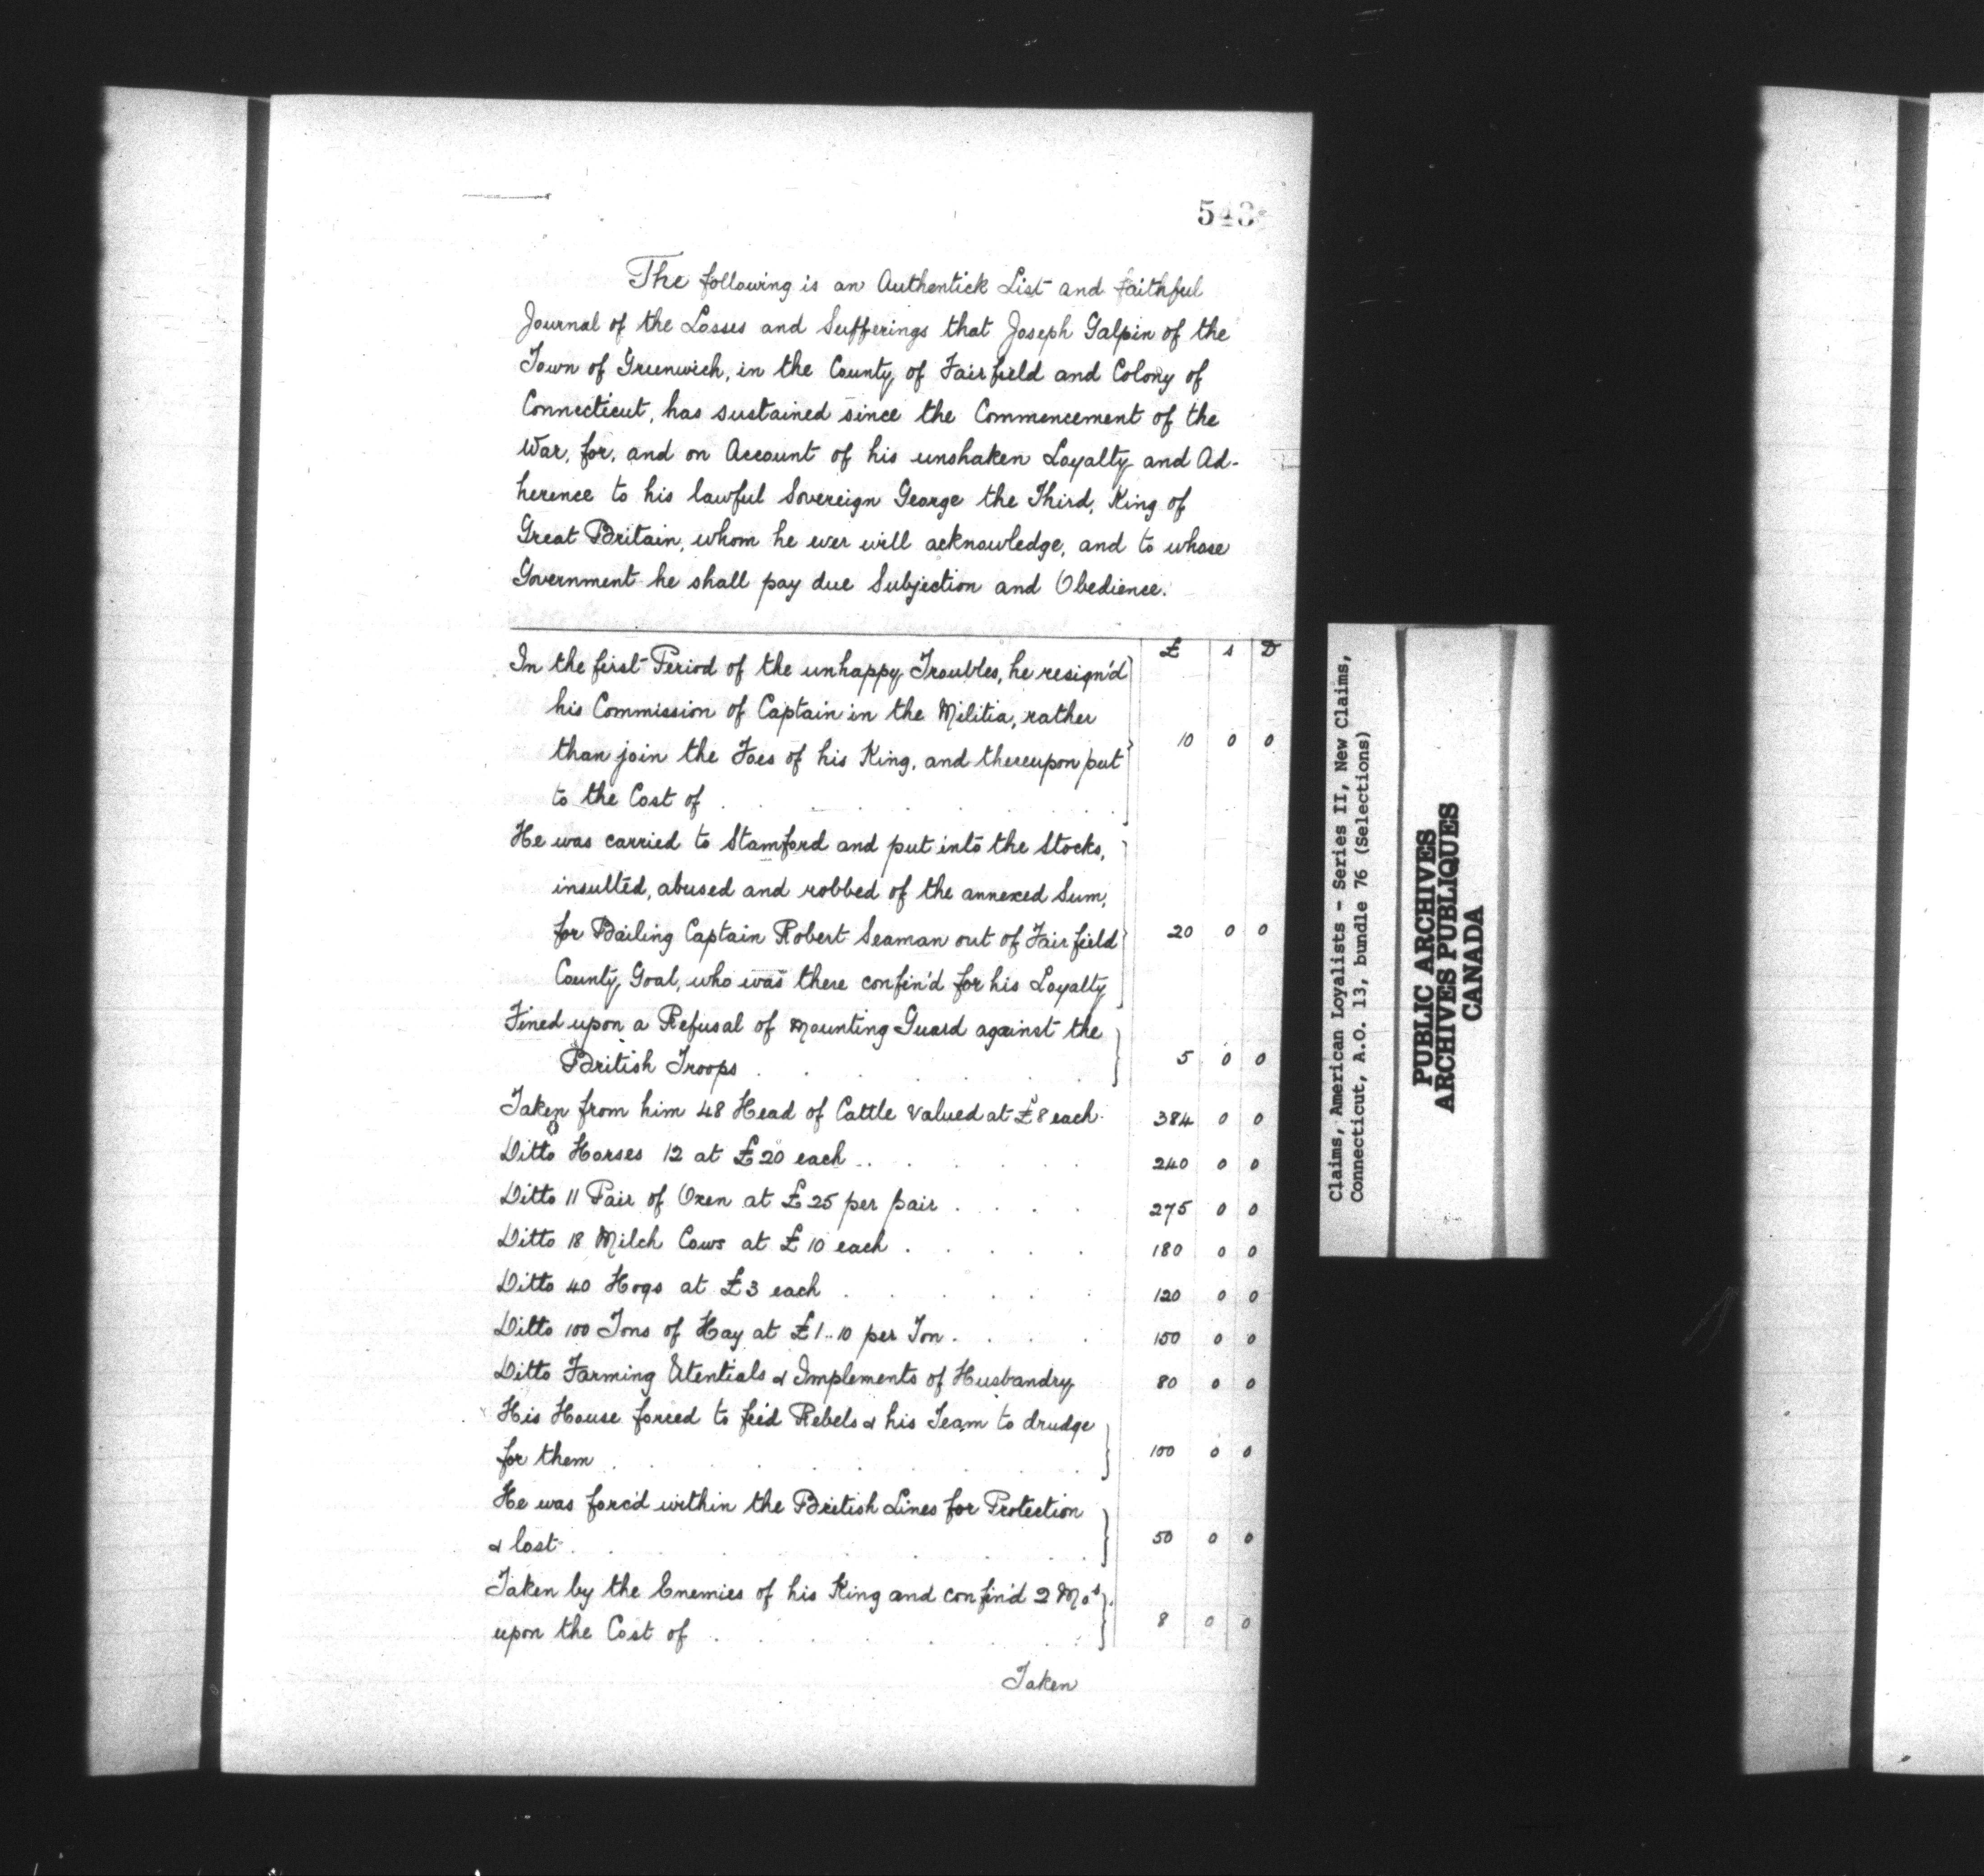 The following is an Authentick List and Faithful
Journal of the Losses and Sufferings that Joseph Galpin of the
Town of Greenwich, in the County of Fairfield and Colony of
Connecticut, has sustained since the Commencement of the
War, for, and on Account of his unshaken Loyalty and Ad-
herence to his lawful Sovereign George the Third, King of
Great Britain, whom he ever will acknowledge, and to whose
Government he shall pay due Subjection and Obedience.
£ s D
In the first Period of the unhappy Troubles, he resign'd
his Commission of Captain in the Militia, rather
than join the Foes of his King, and thereupon put 10 0 0
to the Cost of
He was carried to Stamford and put into the Stocks,
insulted, abused and robbed of the annexed Sum,
for Bailing Captain Robert Seaman out of Fairfield 20 0 0
County Goal, who was there confin'd for his Loyalty
Fined upon a Refusal of Mounting Guard against the
British Troops . . . . 5 0 0
Taken from him 48 Head of Cattle valued at £8 each. 384 0 0
Ditto Horses 12 at £20 each . . . . 240 0 0
Ditto 11 Pair of Oxen at £25 per pair . . . . 275 0 0
Ditto 18 Milch Cows at £10 each . . . . 180 0 0
Ditto 40 Hogs at £3 each . . . . 120 0 0
Ditto 100 Tons of Hay at £1..10 per Ton . . . . 150 0 0
Ditto Farming Utentials & Implements of Husbandry 80 0 0
His House forced to fe'd Rebels & his Team to drudge
for them . . . . 100 0 0
He was forc'd within the British Lines for Protection
& lost . . . . 50 0 0
Taken by the Enemies of his King and confin'd 2 Mos.
upon the Cost of . . . . 8 0 0
Taken
Claims, American Loyalists - Series II, New Claims,
Connecticut, A.O. 13, bundle 76 (Selections)
PUBLIC ARCHIVES
ARCHIVES PUBLIQUES
CANADA